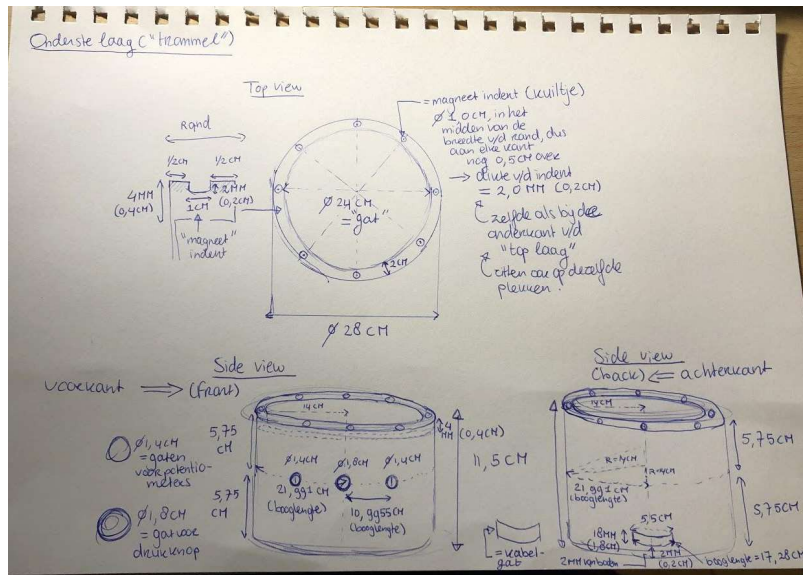 Onderste laag ("trommel")
Top view
Rand
1/2CM
1/2CM
4MM
(0,4CM)
2MM
(0,2CM)
1CM
"magneet"
indent
Ø 24 CM
= "gat"
2CM
Ø 28 CM
= magneet indent (kuiltje)
Ø 1,0CM, in het
midden van de
breedte v/d rand, dus
aan elke kant
nog 0,5CM over
→ dikte v/d indent
= 2,0 MM (0,2CM)
zelfde als bij de
onderkant v/d
"top laag"
zitten ook op dezelfde
plekken.
Side view
voorkant ⟹ (Front)
Ø1,4CM
= gaten
voor potentio-
meters
Ø1,8CM
= gat voor
drukknop
5,75
CM
5,75
CM
14CM
4
MM (0,4CM)
11,5CM
Ø1,4CM
Ø1,8CM
Ø1,4CM
21,991CM
(booglengte)
10,9955CM
(booglengte)
= kabel-
gat
Side view
(back) ⟸ achterkant
14CM
R=14CM
R=14CM
21,991 CM
(booglengte)
5,75CM
5,75CM
5,5CM
18MM
(1,8CM)
2MM van bodem
2MM
(0,2CM)
booglengte = 17,28CM